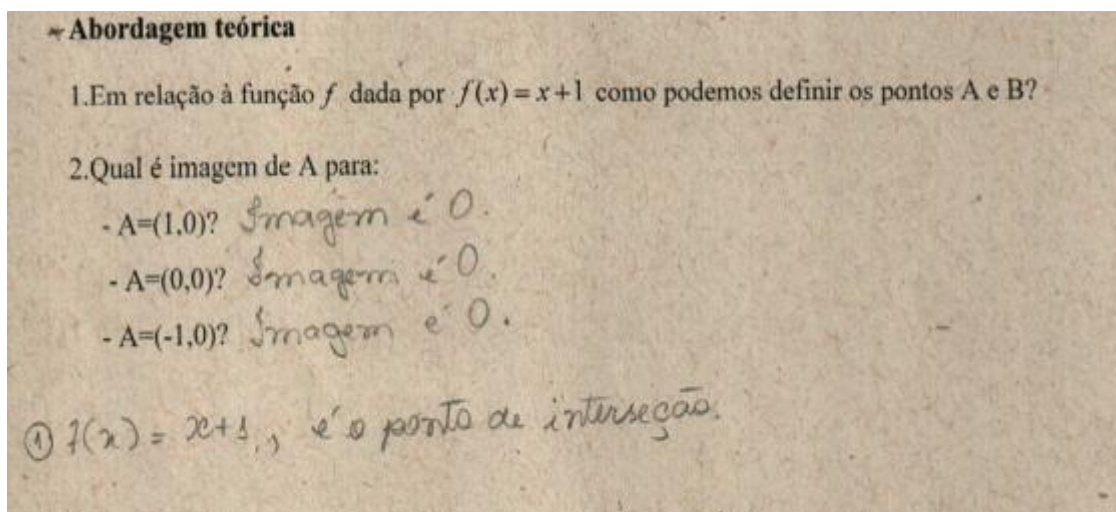 Abordagem teórica
1.Em relação à função f dada por f(x)=x+1 como podemos definir os pontos A e B?
2.Qual é imagem de A para:
- A=(1,0)? Imagem é 0.
- A=(0,0)? Imagem é 0.
- A=(-1,0)? Imagem é 0.
① f(x) = x+1,, é o ponto de interseção.